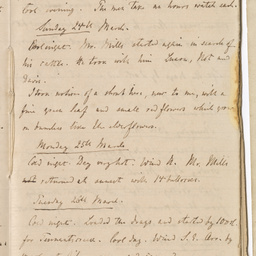 Cool evening. This mer. two an hours watch each.
Sunday 24th March.
Cool night. Mr. Mills started again in search of
his cattle. He took with him Tucson, Pet and
Davis.
I took notice of a short tree, new to me, with a
fine green leaf and small red flowers which grow
on bunches like the elderflowers.
Monday 25th March
Cool night. Day very hot. Wind N. Mr. Mills
returned at sunset with 14 bullocks.
Tuesday 26th March.
Cool night. Loaded the drays and started by 10 o'cl.
for Cool day. Wind S.E. by